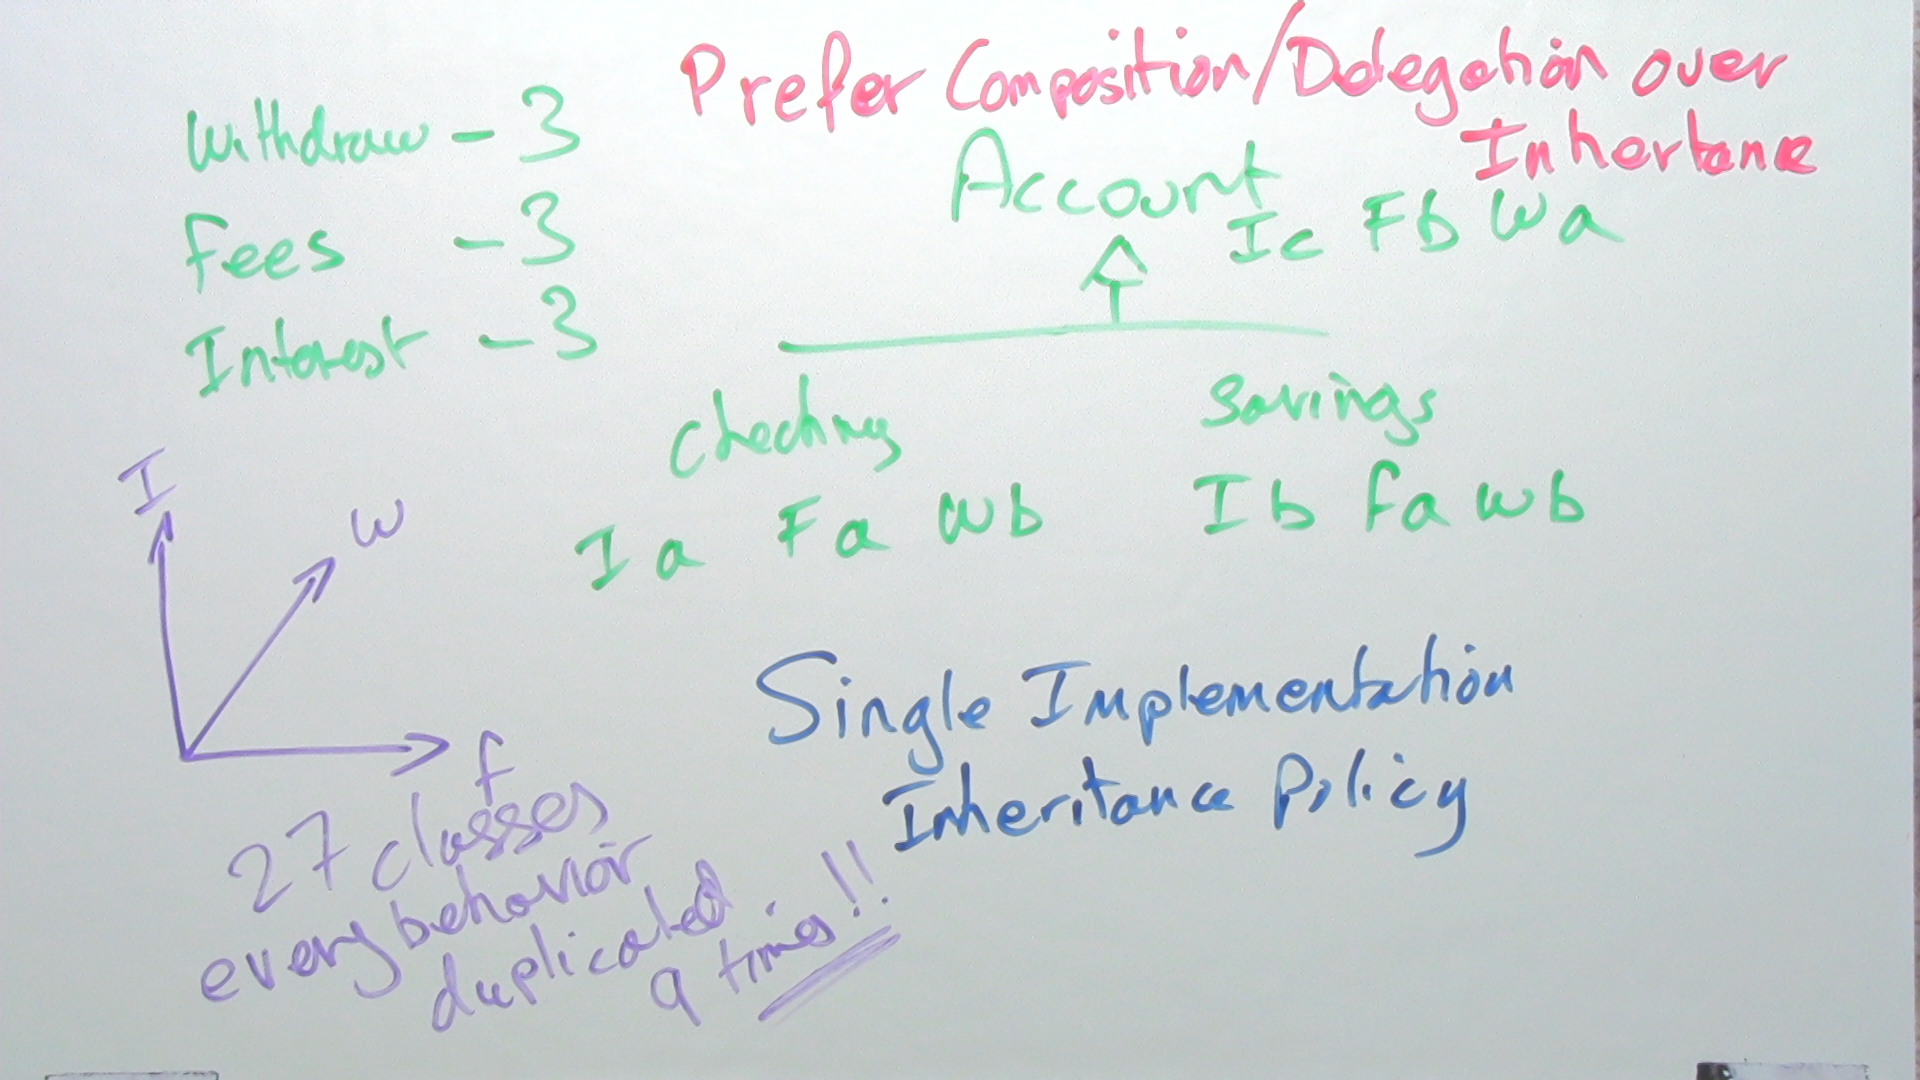 Prefer Composition/Delegation over
Inhertance
Withdraw - 3
Fees - 3
Interest - 3
Account
Ic Fb Wa
Checking
Ia Fa Wb
Savings
Ib Fa Wb
I
W
F
27 classes
every behavior
duplicated
9 times!!
Single Implementation
Inheritance Policy